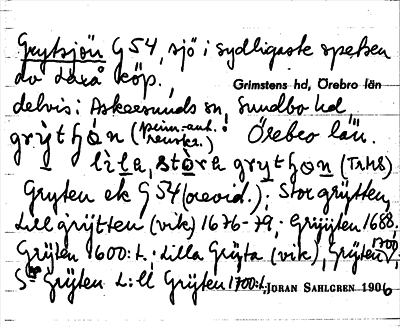 Grytsjön G 54, sjö i sydligaste spetsen
av Laxå köp.,
Grimstens hd, Örebro län
delvis i Askersunds sn, Sundbo hd
Örebro län.
lìla, stòra
Gryten ek G 54 (oeoid.); Stor grÿtten,
Lill grÿtten (vik) 1676-79; Grijÿten 1688;
Grÿten 1600:t.; Lilla Grÿta (vik), Grÿten 1700;
St Grÿten L:ll Grÿten 1700:t.
JÖRAN SAHLGREN 1906